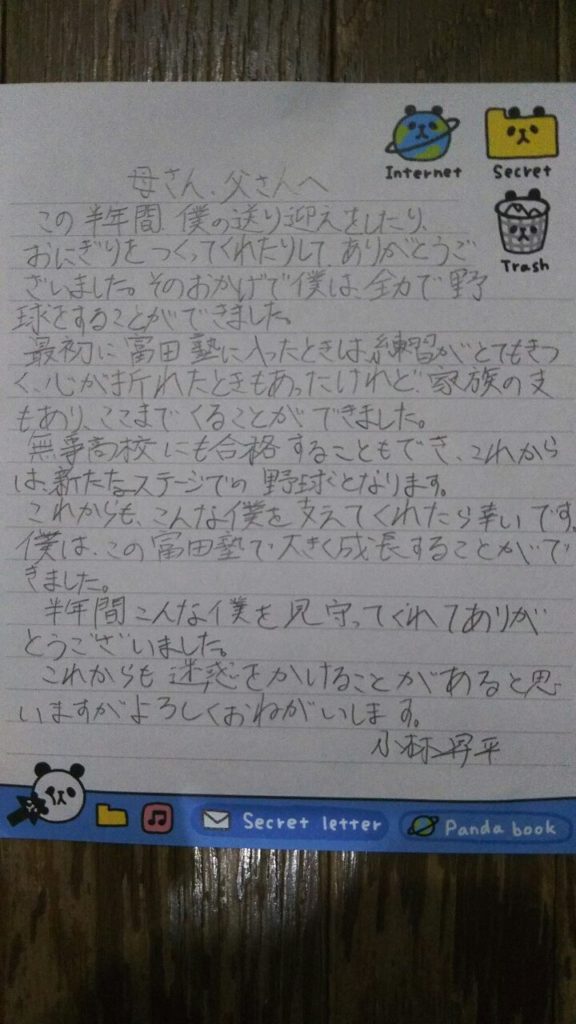 Internet
Secret
Trash
母さん、父さんへ
この半年間、僕の送り迎えをしたり、
おにぎりをつくってくれたりして、ありがとうご
ざいました。そのおかげで僕は、全力で野
球をすることができました。
最初に富田塾に入ったときは、練習がとてもきつ
く、心が折れたときもあったけれど、家族の支
もあり、ここまでくることができました。
無事高校にも合格することもでき、これから
は、新たなステージでの野球となります。
これからも、こんな僕を支えてくれたら幸いです。
僕は、この富田塾で大きく成長することがで
きました。
半年間こんな僕を見守ってくれてありが
とうございました。
これからも迷惑をかけることがあると思
いますがよろしくおねがいします。
小林昇平
Secret letter
Panda book